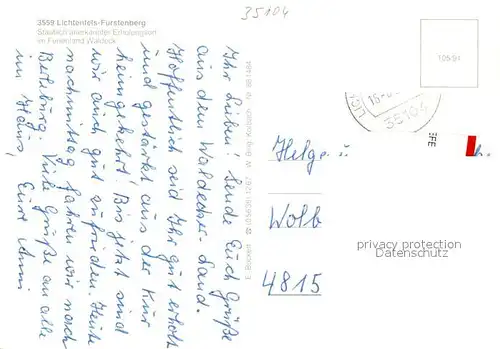 35104
3559 Lichtenfels-Fürstenberg
Staatlich anerkannter Erholungsort
im Ferienland Waldeck
Ihr Lieben! Sende Euch Grüße
aus dem Waldecker-Land.
Hoffentlich seid Ihr gut erholt
und gestärkt aus der Kur
heimgekehrt! Bis jetzt sind
wir auch gut zufrieden. Heute
nachmittag fahren wir nach
Viele Grüße an alle
im Haus, Eure
W. Brög
105/91
35104
Helge u
h.
Wolb
4815
privacy protection
Datenschutz